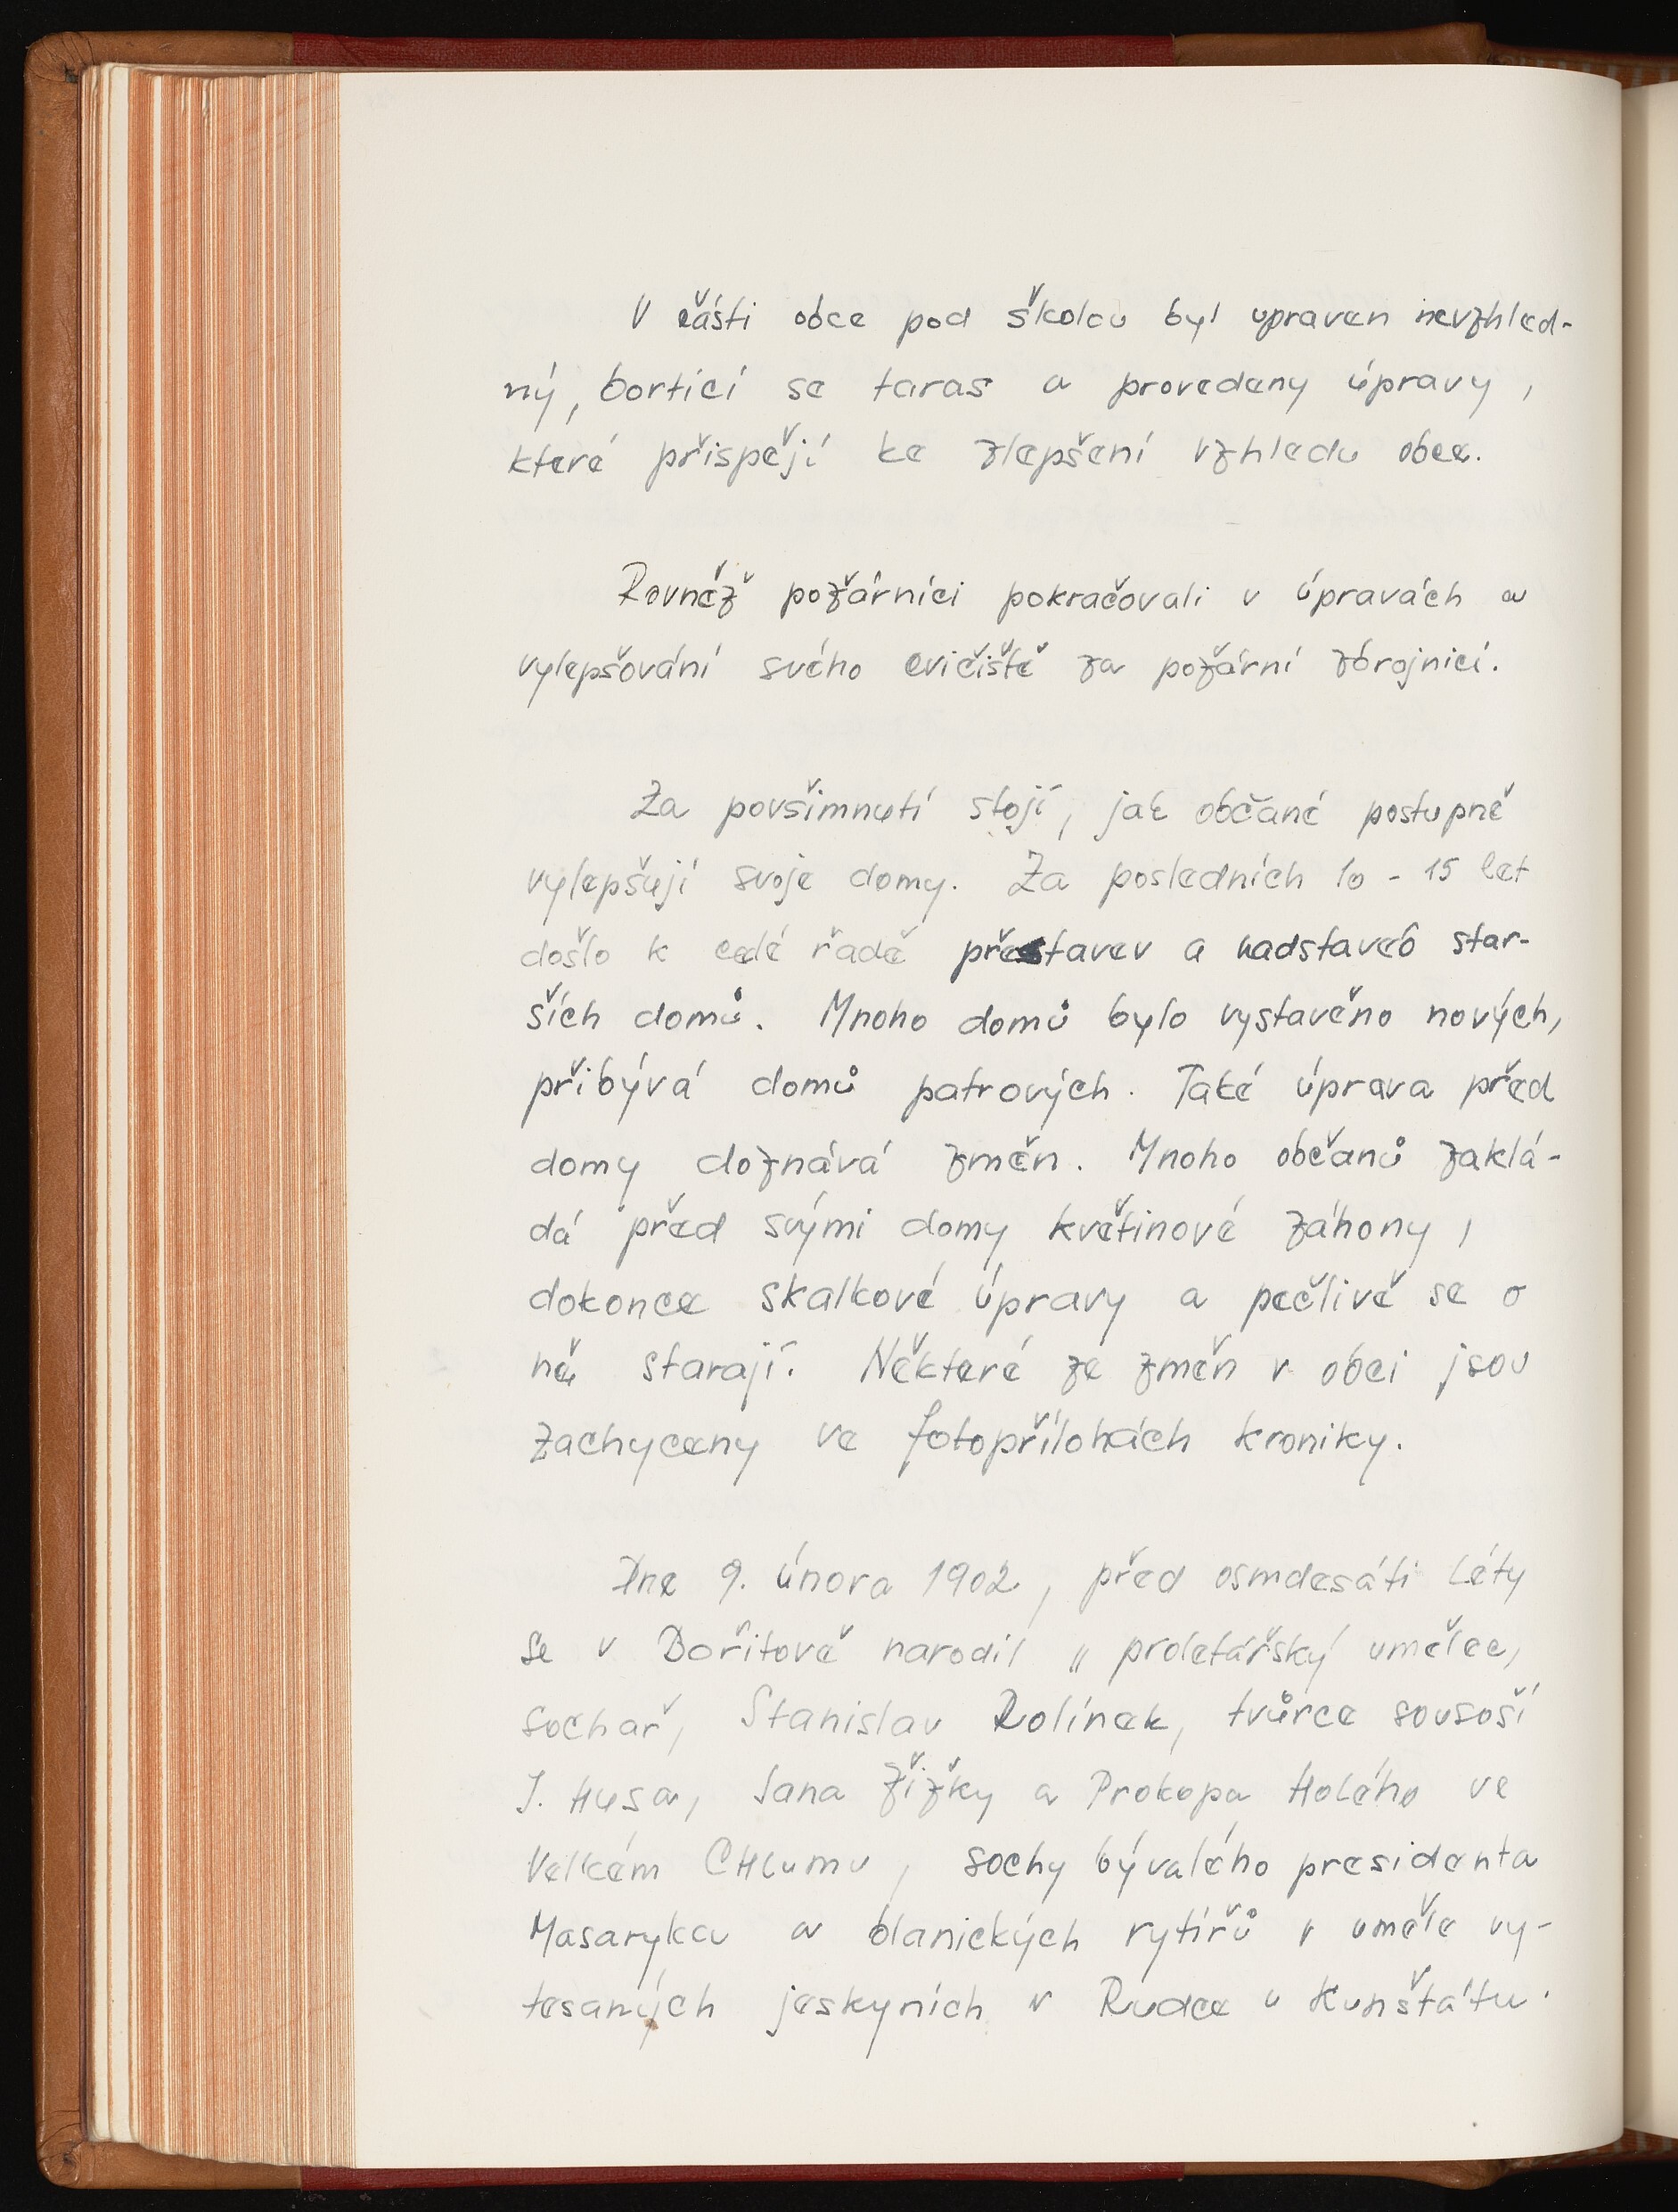 V části obce pod školou byl upraven nevzhled-
ný, bortící se taras a provedeny úpravy,
které přispějí ke zlepšení vzhledu obce.
Rovněž požárníci pokračovali v úpravách a
vylepšování svého cvičiště za požární zbrojnicí.
Za povšimnutí stojí, jak občané postupně
vylepšují svoje domy. Za posledních 10 - 15 let
došlo k celé řadě přestavev a nadstaveb star-
ších domů. Mnoho domů bylo vystavěno nových,
přibývá domů patrových. Také úprava před
domy doznává změn. Mnoho občanů zaklá-
dá před svými domy květinové záhony,
dokonce skalkové úpravy a pečlivě se o
ně starají. Některé ze změn v obci jsou
zachyceny ve fotopřílohách kroniky.
Dne 9. února 1902, před osmdesáti léty
se v Bořitově narodil „ proletářský umělec,
sochař, Stanislav Rolínek, tvůrce sousoší
J. Husa, Jana Žižky a Prokopa Holého ve
Velkém CHlumu, sochy bývalého presidenta
Masaryka a blanických rytířů v uměle vy-
tesaných jeskyních v Rudce u Kunštátu.